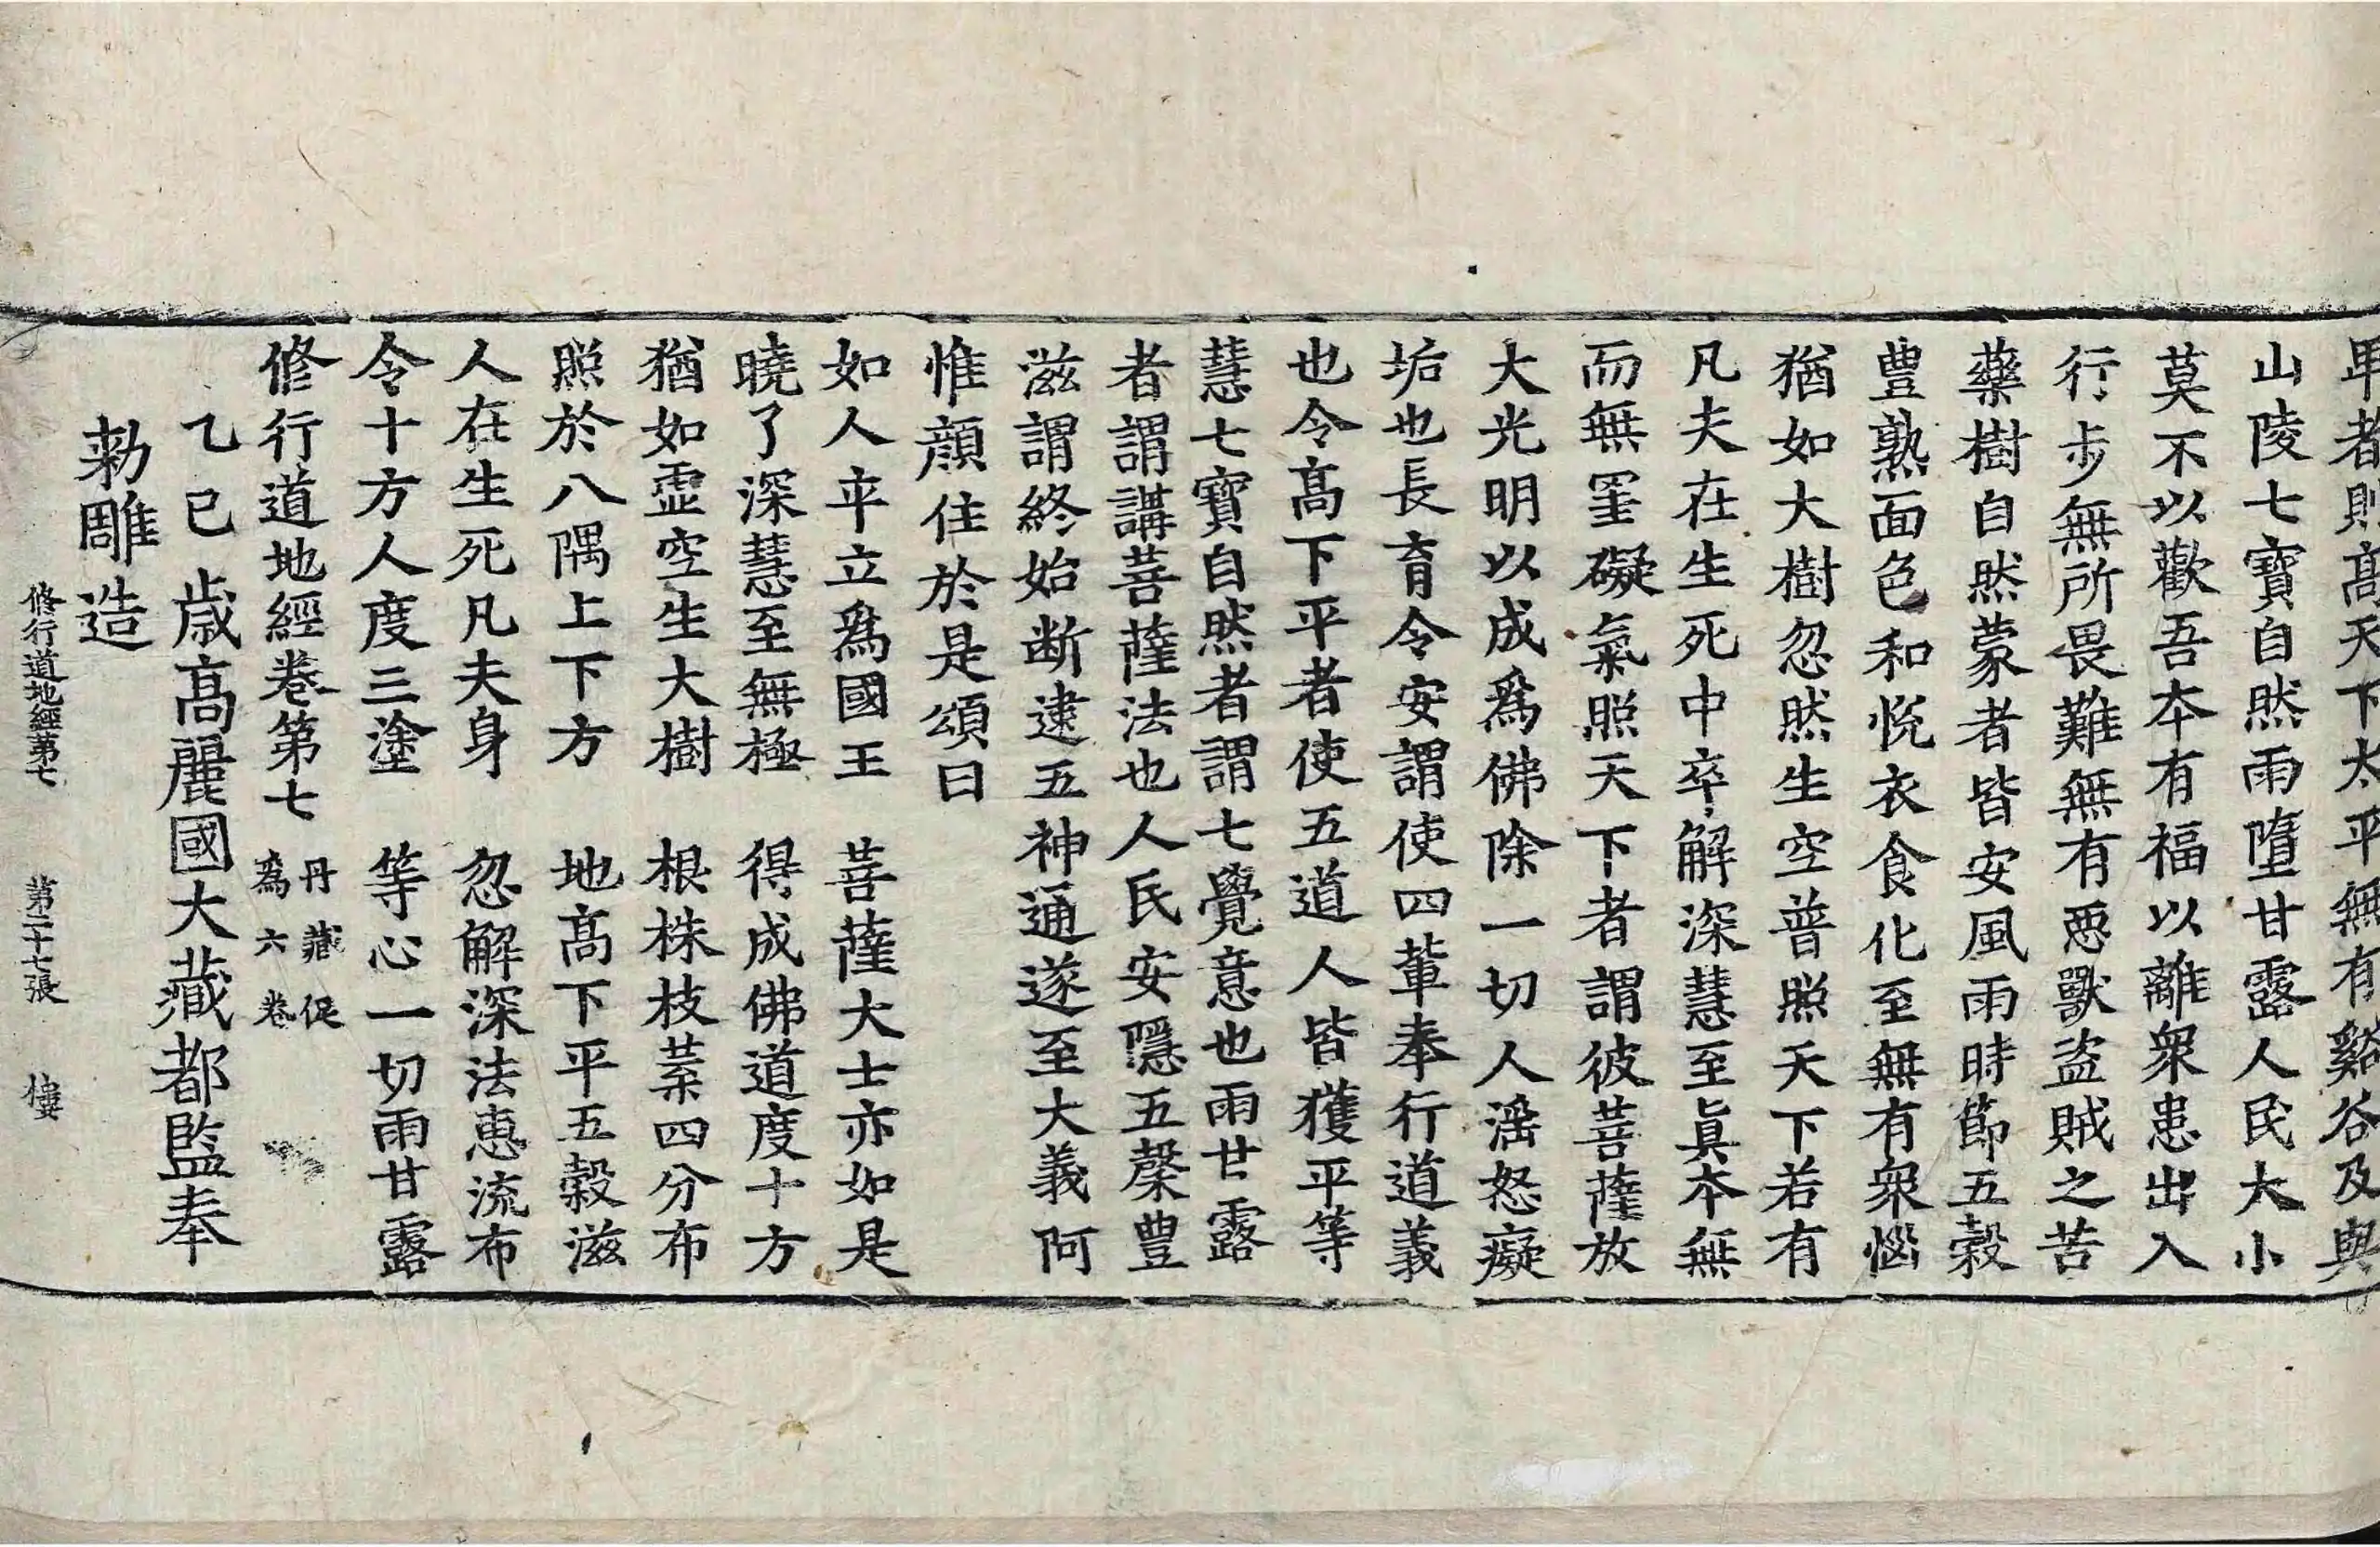 卑者則髙天下太平無有谿谷及與
山陵七寶自然雨墮甘露人民大小
莫不以歡吾本有福以離衆患出入
行步無所畏難無有惡獸盜賊之苦
藥樹自然蒙者皆安風雨時節五穀
豊熟面色和悅衣食化至無有衆惱
猶如大樹忽然生空普照天下若有
凡夫在生死中卒解深慧至眞本無
而無罣礙氣照天下者謂彼菩薩放
大光明以成爲佛除一切人婬怒癡
垢也長育令安謂使四輩奉行道義
也令髙下平者使五道人皆獲平等
慧七寶自然者謂七覺意也雨甘露
者謂講菩薩法也人民安隱五榖豊
滋謂終始斷逮五神通遂至大義阿
惟顔住於是頌曰
如人卒立爲國王　菩薩大士亦如是
曉了深慧至無極　得成佛道度十方
猶如虛空生大樹　根株枝葉四分布
照於八隅上下方　地髙下平五穀滋
人在生死凡夫身　忽解深法惠流布
令十方人度三塗　等心一切雨甘露
修行道地經卷第七　丹藏促
爲六卷
乙巳歲髙麗國大藏都監奉
勅雕造
修行道地經第七　第二十七張　樓